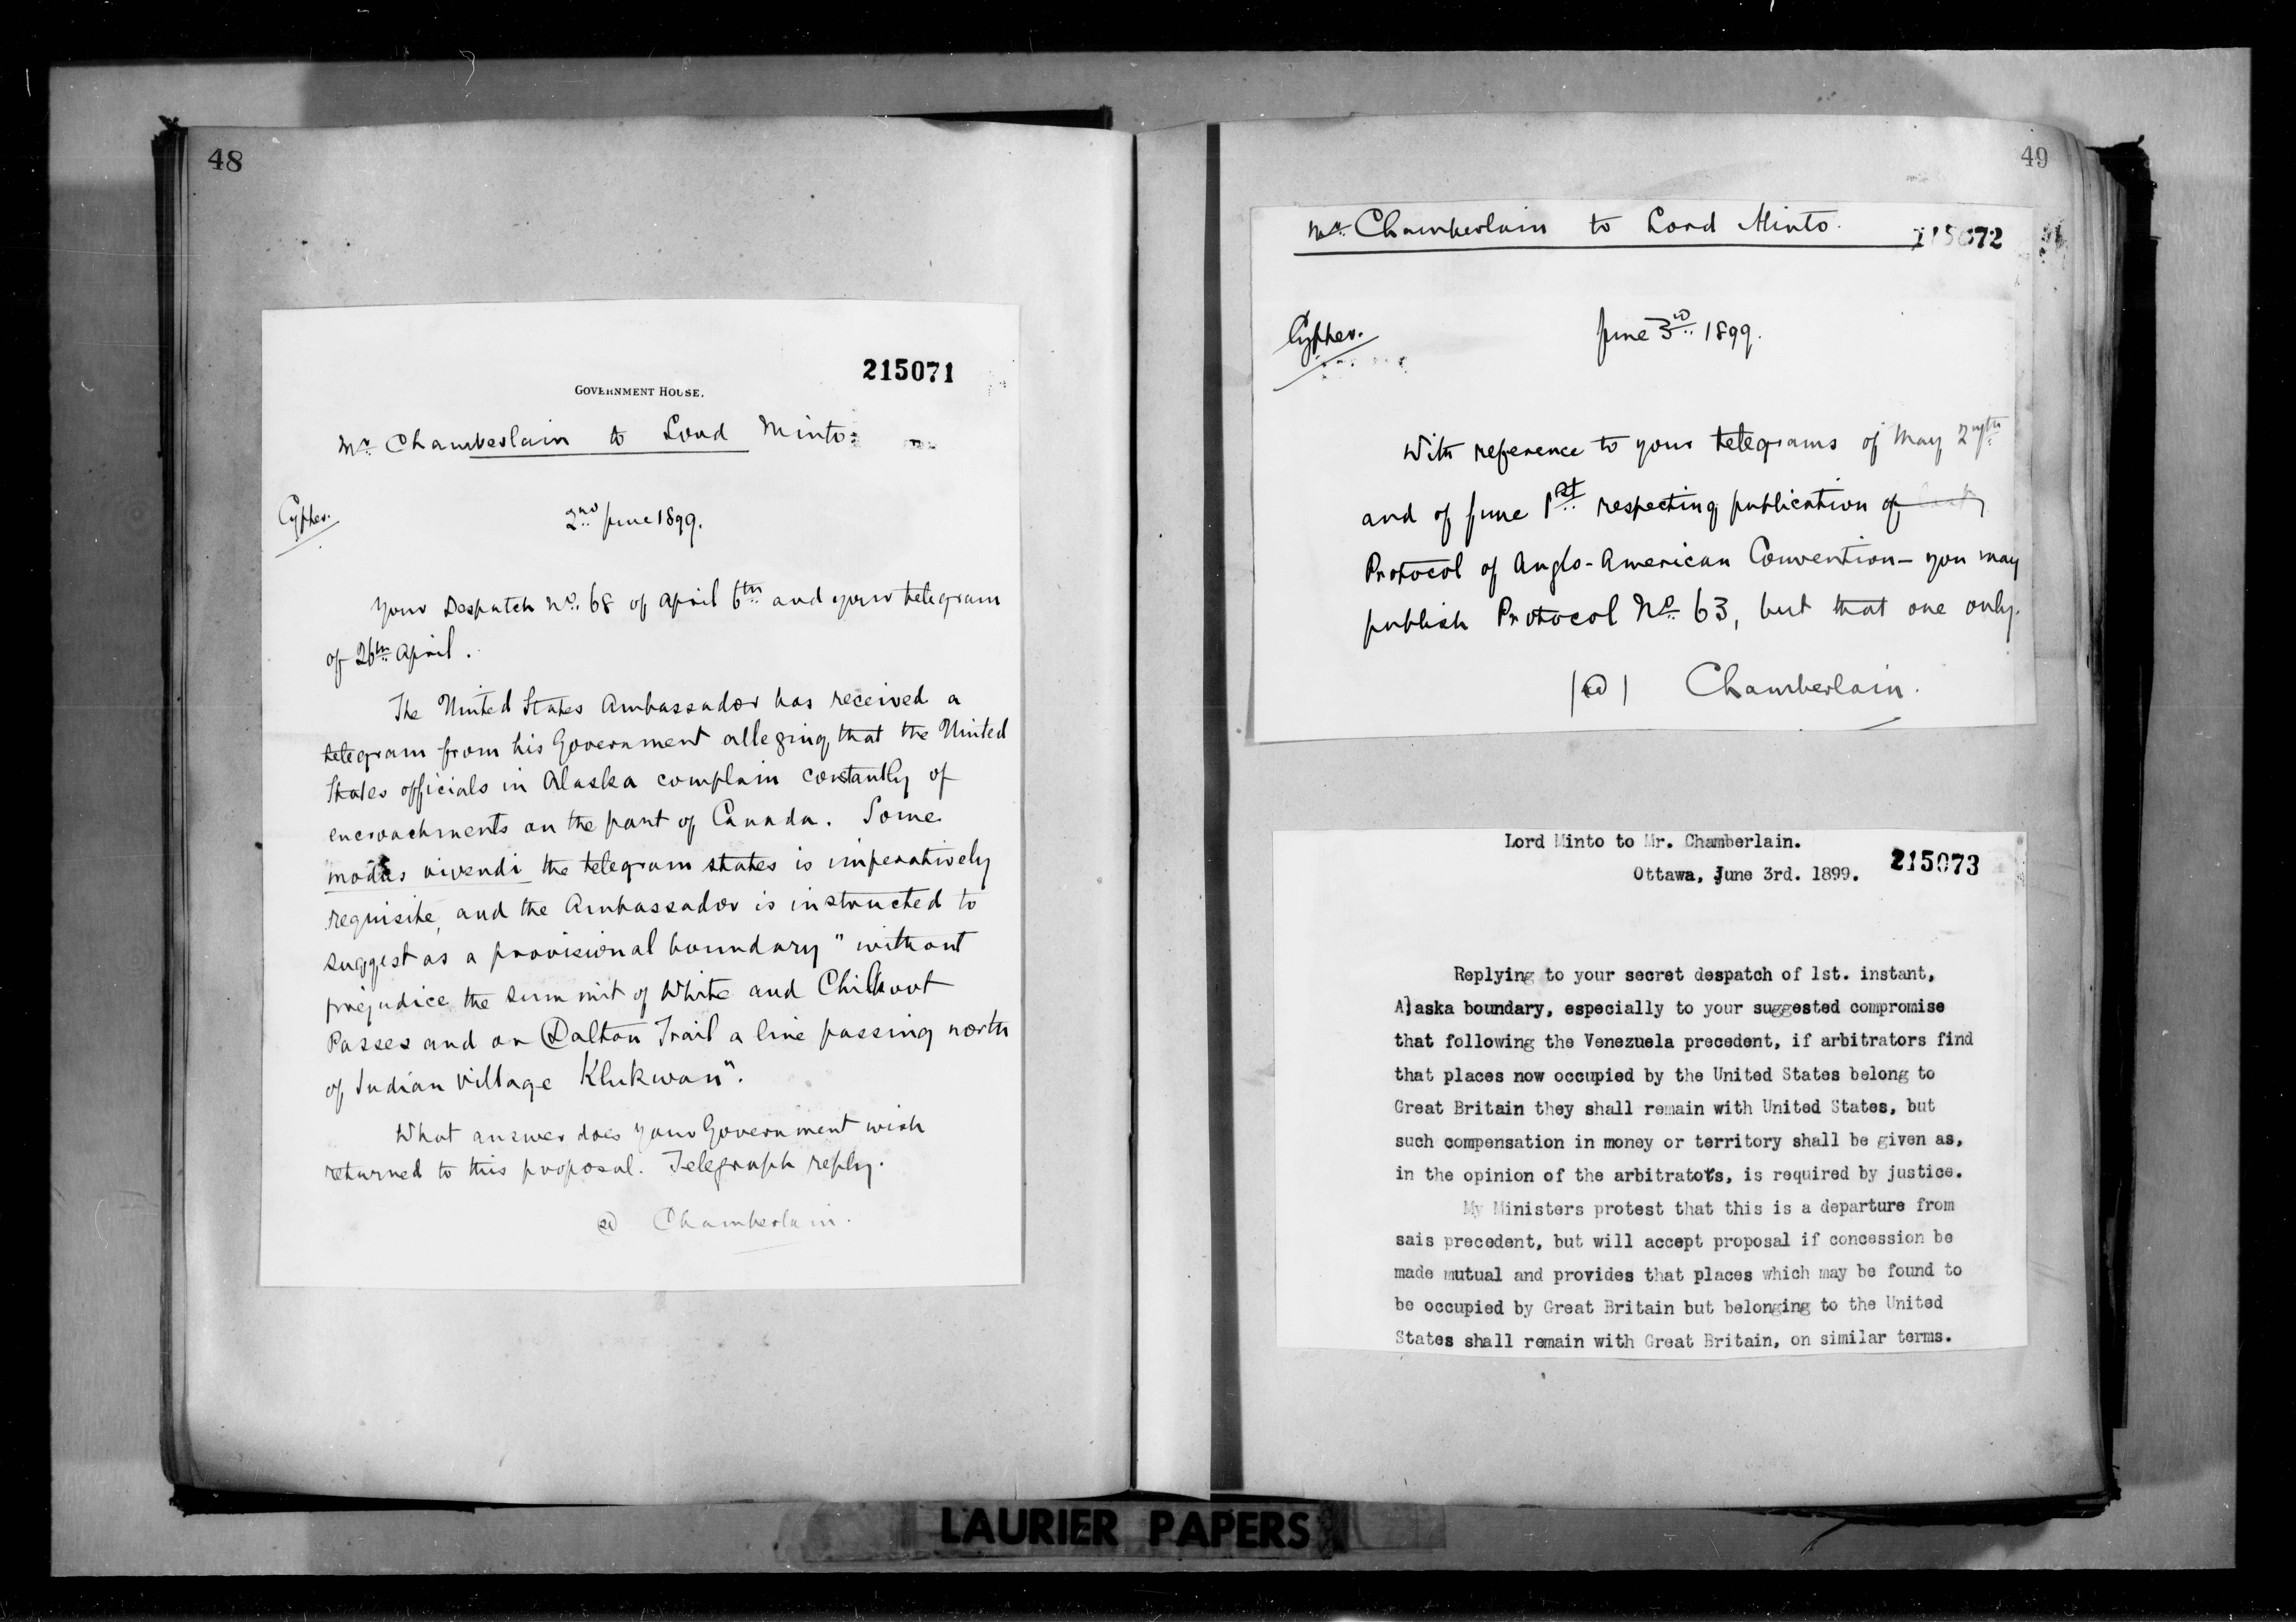 48
215071
GOVERNMENT HOUSE.
Mr. Chamberlain to Lord Minto.
Cypher.
2nd June 1899.
Your Despatch No. 68 of April 6th and your telegram
of 26th April.
The United States Ambassador has received a
telegram from his Government alleging that the United
States officials in Alaska complain constantly of
encroachments on the part of Canada. Some
modus vivendi the telegram states is imperatively
requisite, and the Ambassador is instructed to
suggest as a provisional boundary "without
prejudice the summit of White and Chilkoot
Passes and on Dalton Trail a line passing north
of Indian village Klukwan".
What answer does your Government wish
returned to this proposal. Telegraph reply.
sd Chamberlain.
49
Mr. Chamberlain to Lord Minto.
215072
Cypher.
June 3rd 1899.
With reference to your telegrams of May 27th
and of June 1st respecting publication of
Protocol of Anglo-American Convention - you may
publish Protocol No. 63, but that one only.
(sd) Chamberlain.
Lord Minto to Mr. Chamberlain.
215073
Ottawa, June 3rd. 1899.
Replying to your secret despatch of 1st. instant,
Alaska boundary, especially to your suggested compromise
that following the Venezuela precedent, if arbitrators find
that places now occupied by the United States belong to
Great Britain they shall remain with United States, but
such compensation in money or territory shall be given as,
in the opinion of the arbitrators, is required by justice.
My Ministers protest that this is a departure from
sais precedent, but will accept proposal if concession be
made mutual and provides that places which may be found to
be occupied by Great Britain but belonging to the United
States shall remain with Great Britain, on similar terms.
LAURIER PAPERS